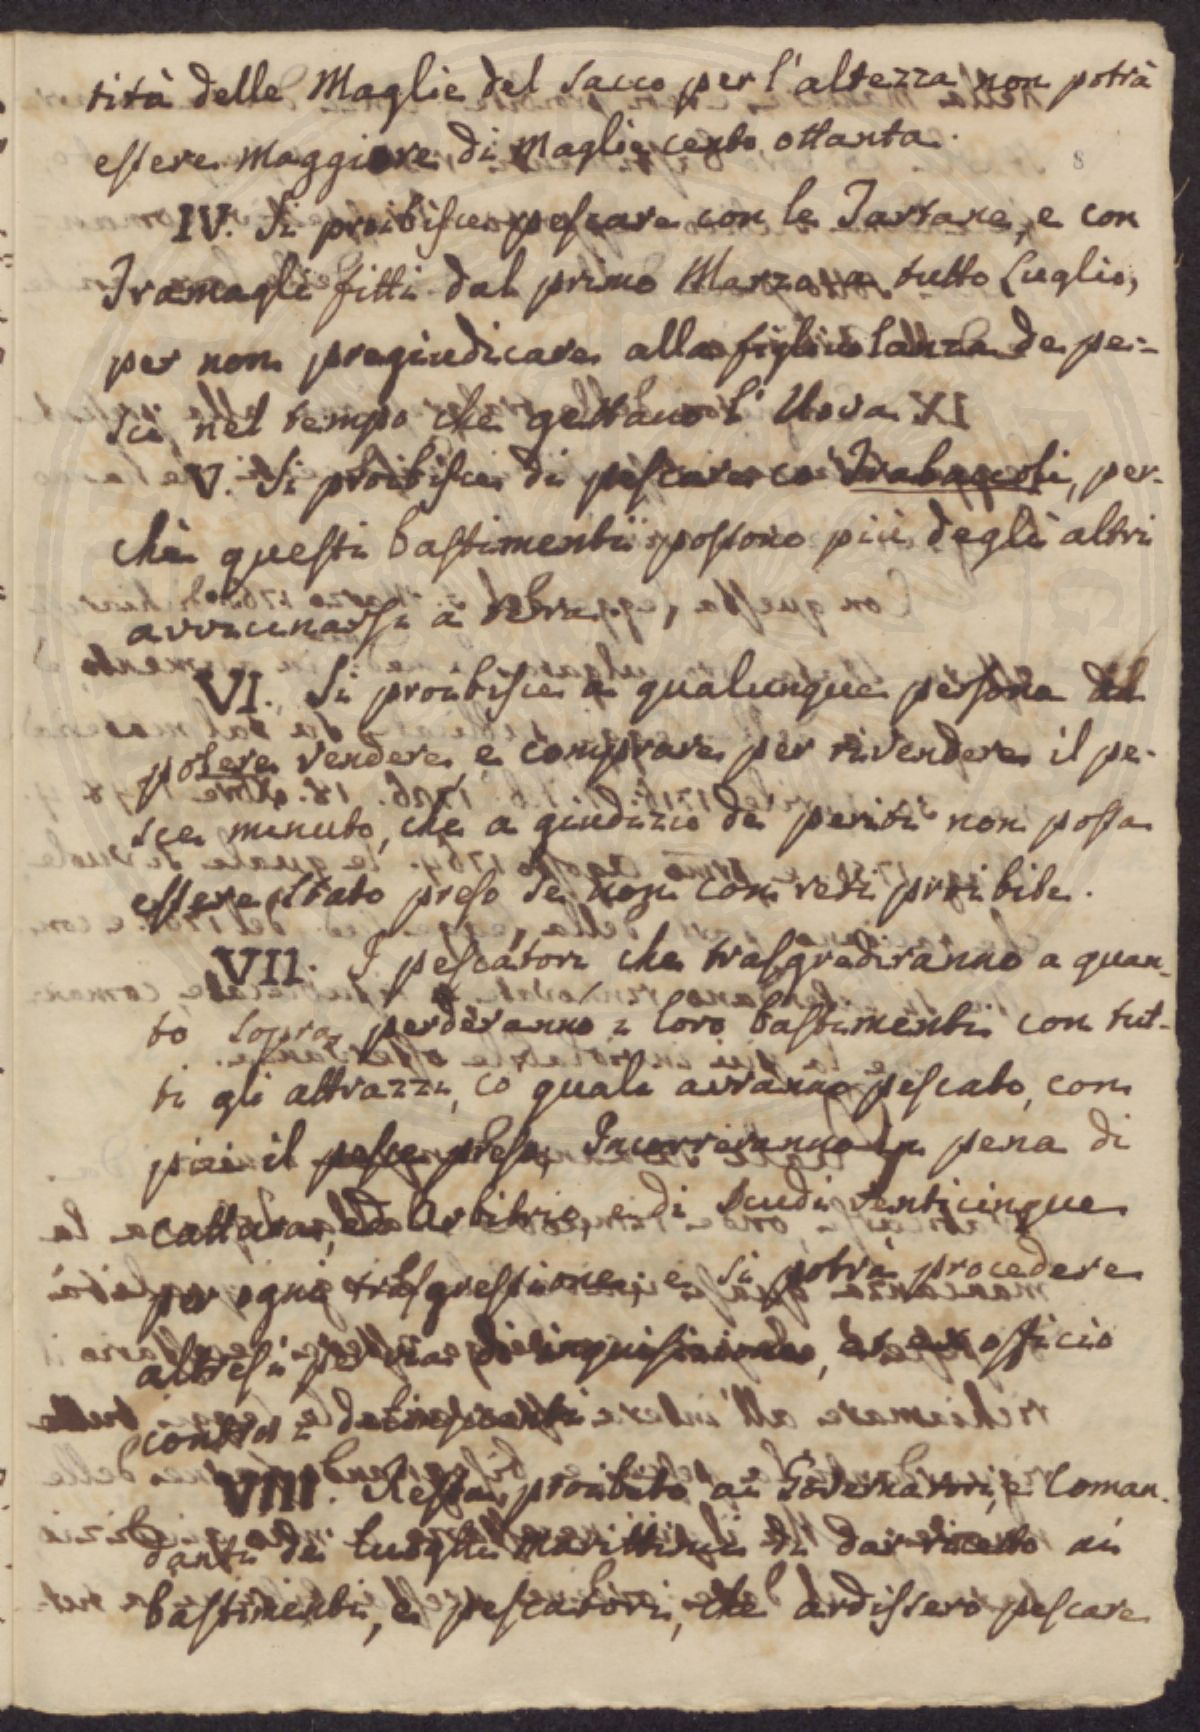 tità delle Maglie del Sacco per l'altezza non potrà
essere maggiore di Maglie cento ottanta.
8
IV. Si proibisce pescare con le Tartane, e con
Tramagli fitti dal primo Marzo a tutto Luglio,
per non pregiudicare alla figliolanza de pe-
sci, nel tempo che gettano l'Uova
V. Si proibisce di pescare co' Trabaccoli, per-
chè questi bastimenti possono più degli altri
avvicinarsi a terra.
VI. Si proibisce a qualunque persona del
potere vendere, e comprare per rivendere il pe-
sce minuto, che a giudizio de periti non possa
essere stato preso se non con reti proibite.
VII. I pescatori che trasgrediranno a quan-
to sopra, perderanno i loro bastimenti con tut-
ti gli attrazzi, co quali avranno pescato, con
più il pesce preso, Incorreranno in pena di
cattura, ed Arbitrio, e di Scudi venticinque
per ogni trasgressione; e si potrà procedere
altresì per via d'inquisizione, et ex officio
contro i delinquenti
VIII. Resta proibito ai Governatori, e Coman-
danti de luoghi marittimi di dar ricetto ai
bastimenti, e pescatori, che ardissero pescare